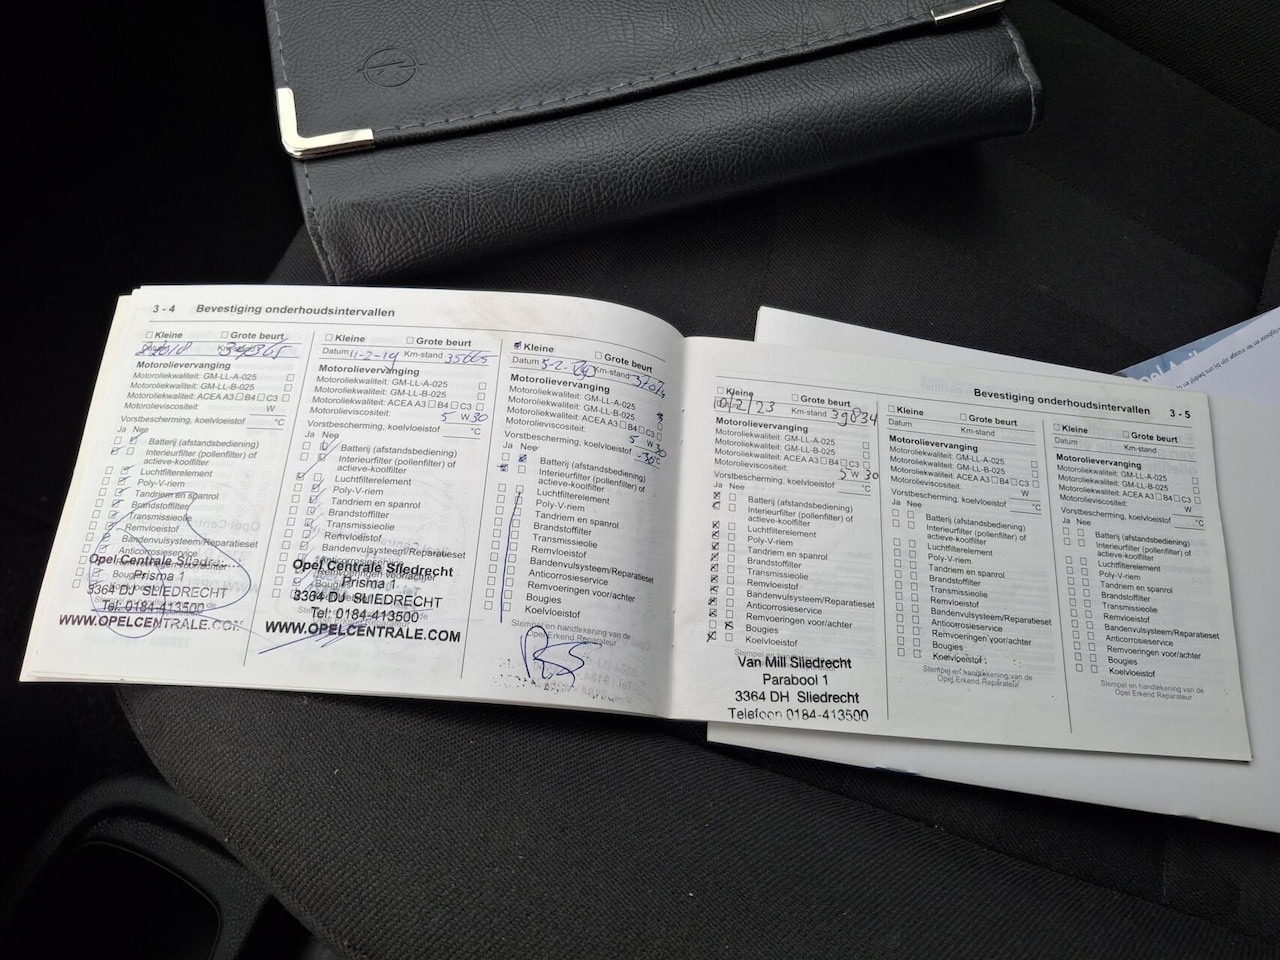 3 - 4 Bevestiging onderhoudsintervallen
Kleine Grote beurt
Motorolievervanging
Motoroliekwaliteit: GM-LL-A-025
Motoroliekwaliteit: GM-LL-B-025
Motoroliekwaliteit: ACEA A3 B4 C3
Motorolieviscositeit: W
Vorstbescherming, koelvloeistof °C
Ja Nee
Batterij (afstandsbediening)
Interieurfilter (pollenfilter) of
actieve-koolfilter
Luchtfilterelement
Poly-V-riem
Tandriem en spanrol
Brandstoffilter
Transmissieolie
Remvloeistof
Bandenvulsysteem/Reparatieset
Anticorrosieservice
Bougies
Opel Centrale Sliedrecht
Prisma 1
3364 DJ SLIEDRECHT
Tel: 0184-413500
WWW.OPELCENTRALE.COM
Kleine Grote beurt
Datum 11-2-19 Km-stand 35665
Motorolievervanging
Motoroliekwaliteit: GM-LL-A-025
Motoroliekwaliteit: GM-LL-B-025
Motoroliekwaliteit: ACEA A3 B4 C3
Motorolieviscositeit: 5 W 30
Vorstbescherming, koelvloeistof °C
Ja Nee
Batterij (afstandsbediening)
Interieurfilter (pollenfilter) of
actieve-koolfilter
Luchtfilterelement
Poly-V-riem
Tandriem en spanrol
Brandstoffilter
Transmissieolie
Remvloeistof
Bandenvulsysteem/Reparatieset
Remvoeringen voor/achter
Opel Centrale Sliedrecht
Prisma 1
3364 DJ SLIEDRECHT
Tel: 0184-413500
WWW.OPELCENTRALE.COM
Kleine Grote beurt
Datum Km-stand
Motorolievervanging
Motoroliekwaliteit: GM-LL-A-025
Motoroliekwaliteit: GM-LL-B-025
Motoroliekwaliteit: ACEA A3 B4 C3
Motorolieviscositeit: 5 W 30
Vorstbescherming, koelvloeistof
Ja Nee
Batterij (afstandsbediening)
Interieurfilter (pollenfilter) of
actieve-koolfilter
Luchtfilterelement
Poly-V-riem
Tandriem en spanrol
Brandstoffilter
Transmissieolie
Remvloeistof
Bandenvulsysteem/Reparatieset
Anticorrosieservice
Remvoeringen voor/achter
Bougies
Koelvloeistof
Stempel en handtekening van de
Opel Erkend Reparateur
Bevestiging onderhoudsintervallen 3 - 5
Kleine Grote beurt
Km-stand 39834
Motorolievervanging
Motoroliekwaliteit: GM-LL-A-025
Motoroliekwaliteit: GM-LL-B-025
Motoroliekwaliteit: ACEA A3 B4 C3
Motorolieviscositeit: 5 W 30
Vorstbescherming, koelvloeistof °C
Ja Nee
Batterij (afstandsbediening)
Interieurfilter (pollenfilter) of
actieve-koolfilter
Luchtfilterelement
Poly-V-riem
Tandriem en spanrol
Brandstoffilter
Transmissieolie
Remvloeistof
Bandenvulsysteem/Reparatieset
Anticorrosieservice
Remvoeringen voor/achter
Bougies
Koelvloeistof
Stempel en handtekening van de
Van Mill Sliedrecht
Parabool 1
3364 DH Sliedrecht
Telefoon 0184-413500
Kleine Grote beurt
Datum Km-stand
Motorolievervanging
Motoroliekwaliteit: GM-LL-A-025
Motoroliekwaliteit: GM-LL-B-025
Motoroliekwaliteit: ACEA A3 B4 C3
Motorolieviscositeit: W
Vorstbescherming, koelvloeistof °C
Ja Nee
Batterij (afstandsbediening)
Interieurfilter (pollenfilter) of
actieve-koolfilter
Luchtfilterelement
Poly-V-riem
Tandriem en spanrol
Brandstoffilter
Transmissieolie
Remvloeistof
Bandenvulsysteem/Reparatieset
Anticorrosieservice
Remvoeringen voor/achter
Bougies
Koelvloeistof
Stempel en handtekening van de
Opel Erkend Reparateur
Kleine Grote beurt
Datum Km-stand
Motorolievervanging
Motoroliekwaliteit: GM-LL-A-025
Motoroliekwaliteit: GM-LL-B-025
Motoroliekwaliteit: ACEA A3 B4 C3
Motorolieviscositeit: W
Vorstbescherming, koelvloeistof °C
Ja Nee
Batterij (afstandsbediening)
Interieurfilter (pollenfilter) of
actieve-koolfilter
Luchtfilterelement
Poly-V-riem
Tandriem en spanrol
Brandstoffilter
Transmissieolie
Remvloeistof
Bandenvulsysteem/Reparatieset
Anticorrosieservice
Remvoeringen voor/achter
Bougies
Koelvloeistof
Stempel en handtekening van de
Opel Erkend Reparateur